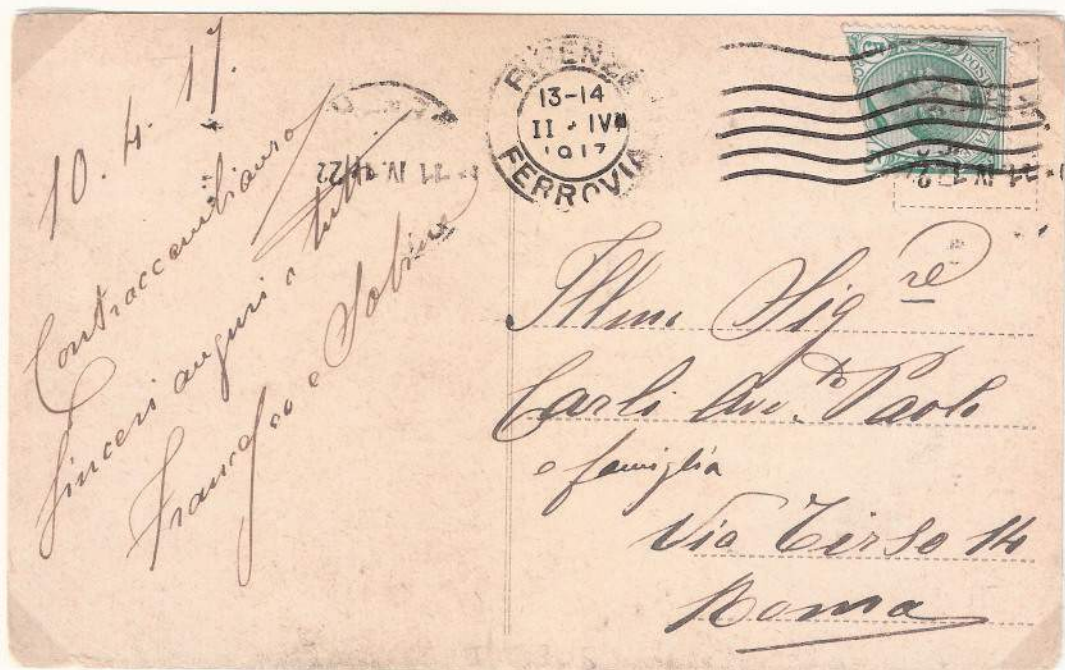 10. 4. 17.
Contraccambiamo
sinceri auguri a tutti.
Francesco e
FIRENZE
13-14
II - IV
1917
FERROVIA
Illmo Sig re
Carli Avv. to Paolo
e famiglia
Via Tirso 14
Roma